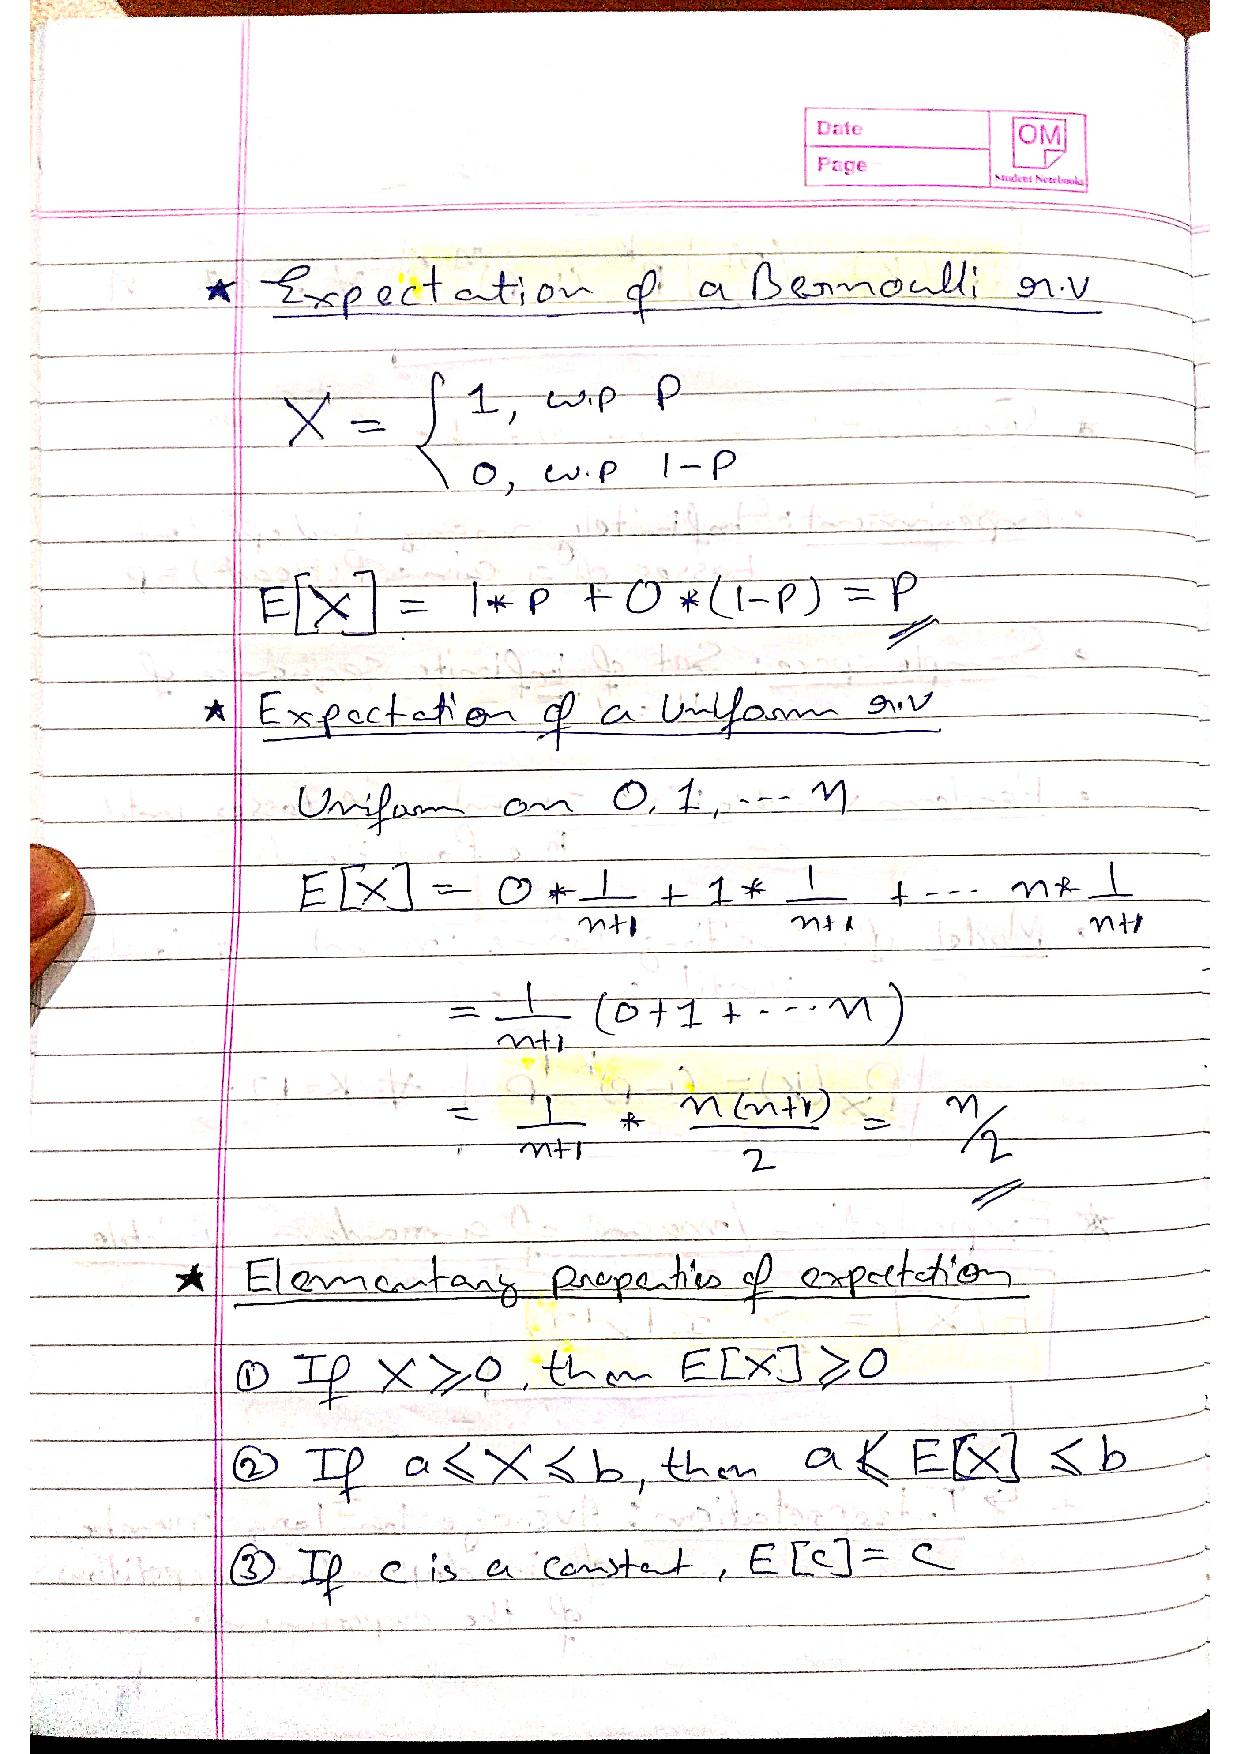 Date
Page
OM
Student Notebooks
★ Expectation of a Bernoulli r.v
X = { 1, w.p P
0, w.p 1-P
E[X] = 1*P + 0*(1-P) = P
★ Expectation of a Uniform r.v
Uniform on 0,1,---n
E[X] = 0*1/n+1 + 1*1/n+1 + --- n*1/n+1
= 1/n+1 (0+1+---n)
= 1/n+1 * n(n+1)/2 = n/2
★ Elementary properties of expectation
① If X⩾0, then E[X]⩾0
② If a⩽X⩽b, then a⩽E[X]⩽b
③ If c is a constant, E[c]=c